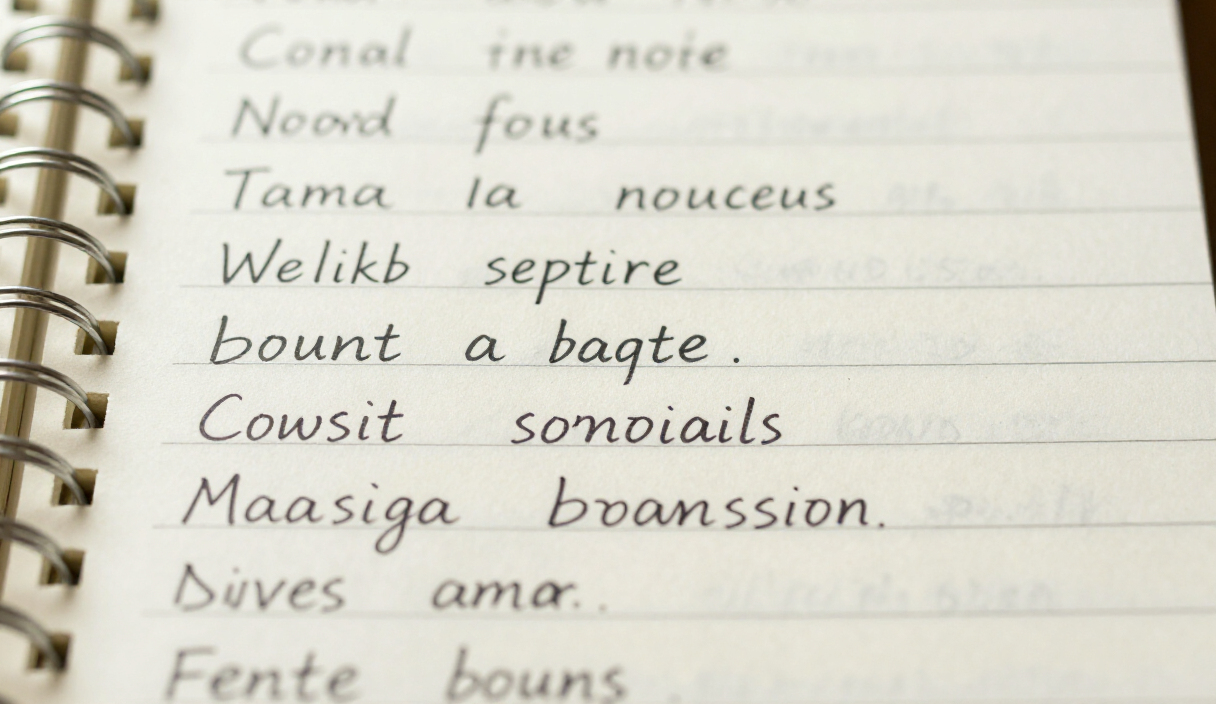 Conal ine noie
Noord fous
Tama la nouceus
Welikb septire
bount a baqte.
Cowsit somoiails
Maasiga boanssion.
Diives amar..
Fente bouns